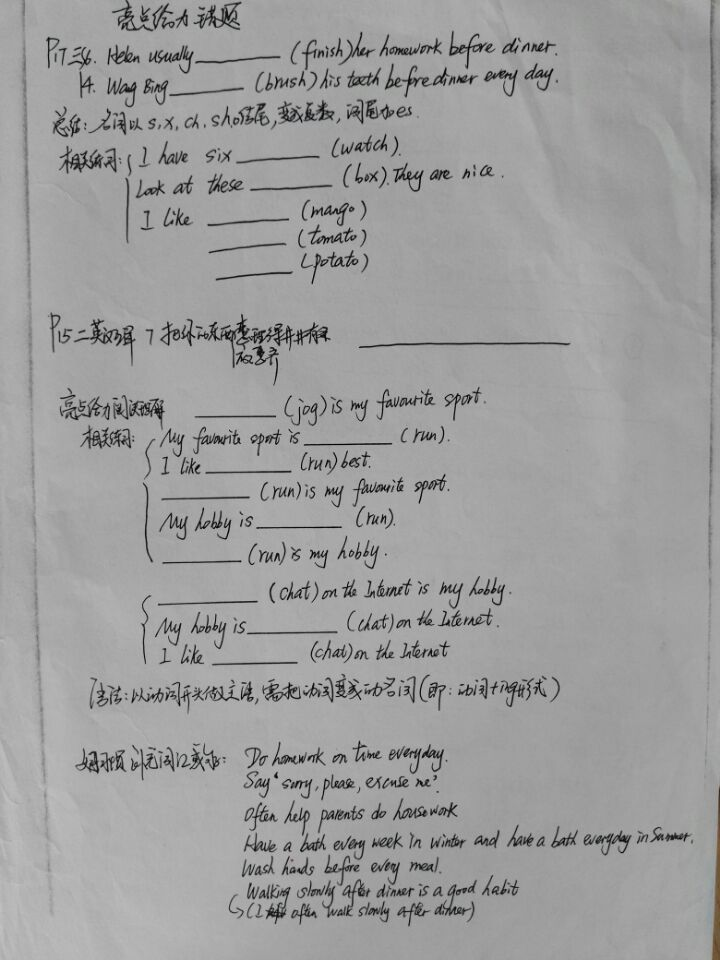 亮点给力错题
P17 三6. Helen usually ________ (finish) her homework before dinner.
14. Wang Bing ________ (brush) his teeth before dinner every day.
总结: 名词以 s, x, ch, sh, o结尾, 变成复数, 词尾加es.
相关练习: I have six ________ (watch).
Look at these ________ (box). They are nice.
I like ________ (mango)
________ (tomato)
________ (potato)
P15 二英汉互译 7 把你的东西整理得井井有条 ________
放整齐
亮点给力阅读理解 ________ (jog) is my favourite sport.
相关练习: My favourite sport is ________ (run).
I like ________ (run) best.
________ (run) is my favourite sport.
My hobby is ________ (run).
________ (run) is my hobby.
________ (chat) on the Internet is my hobby.
My hobby is ________ (chat) on the Internet.
I like ________ (chat) on the Internet
语法: 以动词开头做主语, 需把动词变成动名词 (即: 动词+ing形式)
好习惯
Do homework on time everyday.
Say 'sorry, please, excuse me'.
Often help parents do housework
Have a bath every week in winter and have a bath everyday in Summer.
Wash hands before every meal.
Walking slowly after dinner is a good habit
(I often walk slowly after dinner)